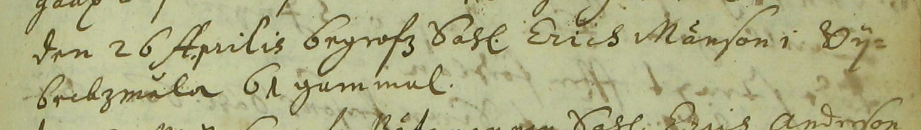 den 26 Aprilis begrofz Sahl. Erich Månson i Vÿ=
beckzmåla 61 gammal.
Sahl. Erich Anderson